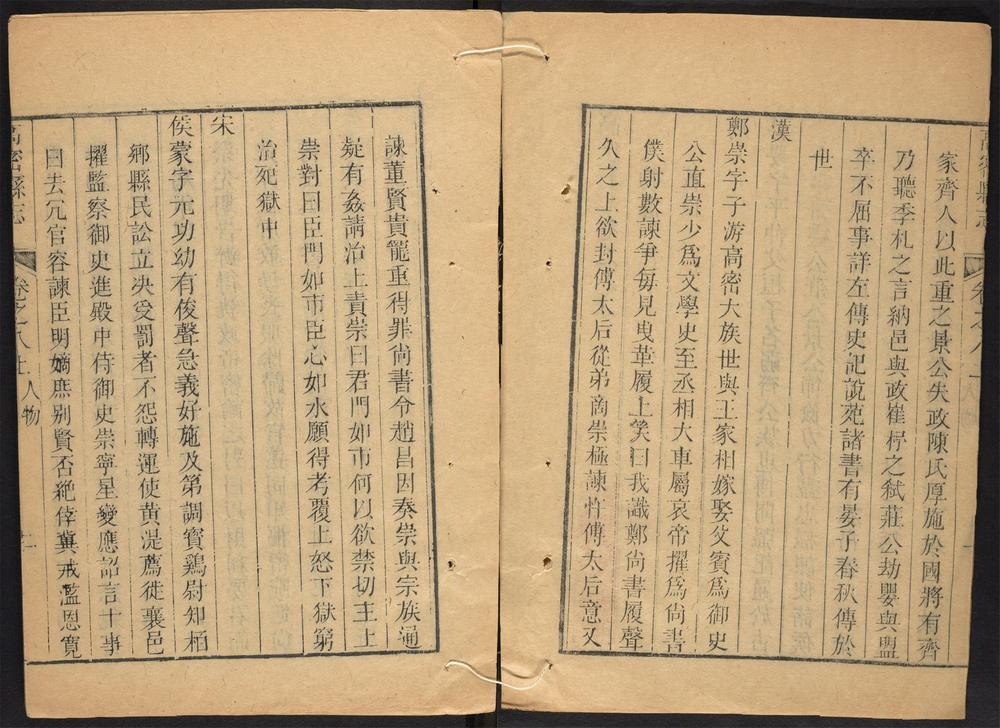 高密縣志
卷之八
家齊人以此重之景公失政陳氏厚施於國將有齊
乃聽季札之言納邑與政崔杼之弒莊公劫嬰與盟
卒不屈事詳左傳史記說苑諸書有晏子春秋傳於
世
漢
鄭崇字子游高密大族世與王家相嫁娶父賓為御史
公直崇少為文學史至丞相大車屬哀帝擢為尚書
僕射數諫爭每見曳革履上笑曰我識鄭尚書履聲
久之上欲封傅太后從弟商崇極諫忤傅太后意又
諫董賢貴寵重得罪尚書令趙昌因奏崇與宗族通
疑有姦請治上責崇曰君門如市何以欲禁切主上
崇對曰臣門如市臣心如水願得考覆上怒下獄窮
治死獄中
宋
侯蒙字元功幼有俊聲急義好施及第調寶鷄尉知栢
鄉縣民訟立决受罰者不怨轉運使黃湜薦徙襄邑
擢監察御史進殿中侍御史崇寧星變應詔言十事
曰去冗官容諫臣明嫡庶别賢否絶倖冀戒濫恩寬
高密縣志
卷之八上
人物
二